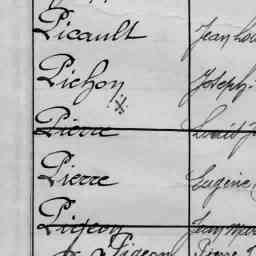 Picault Jean Lou
Pichon Joseph
Pierre Louis J
Pierre Eugène
Pigeon Jean Mar
Pigeon Pierre